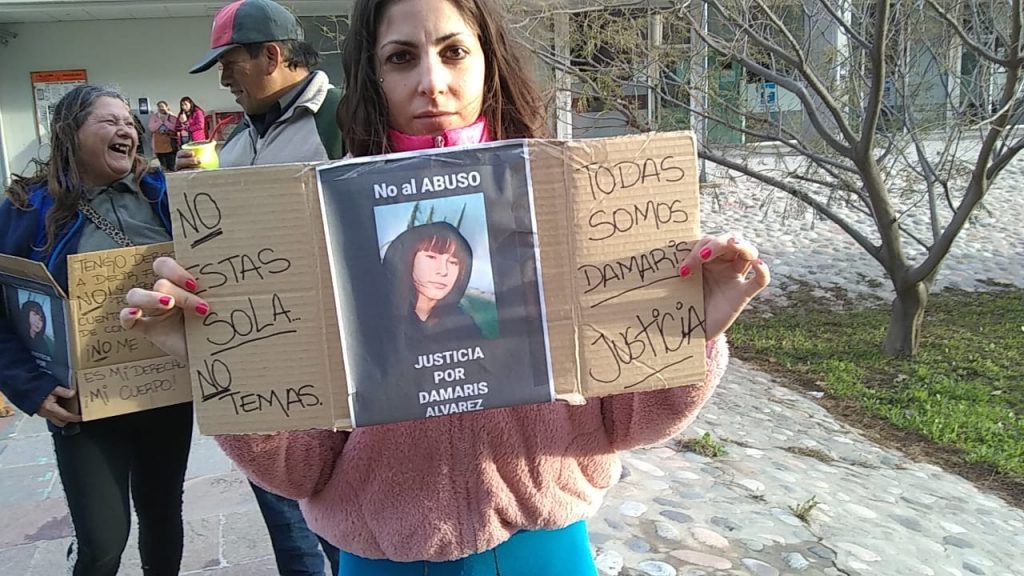 NO
ESTAS
SOLA..
NO TEMAS.
No al ABUSO
JUSTICIA
POR
DAMARIS
ALVAREZ
TODAS
SOMOS
DAMARIS
JUSTICIA
TENGO
A
NO
¡NO ME
ES MI DERECHO
¡MI CUERPO!